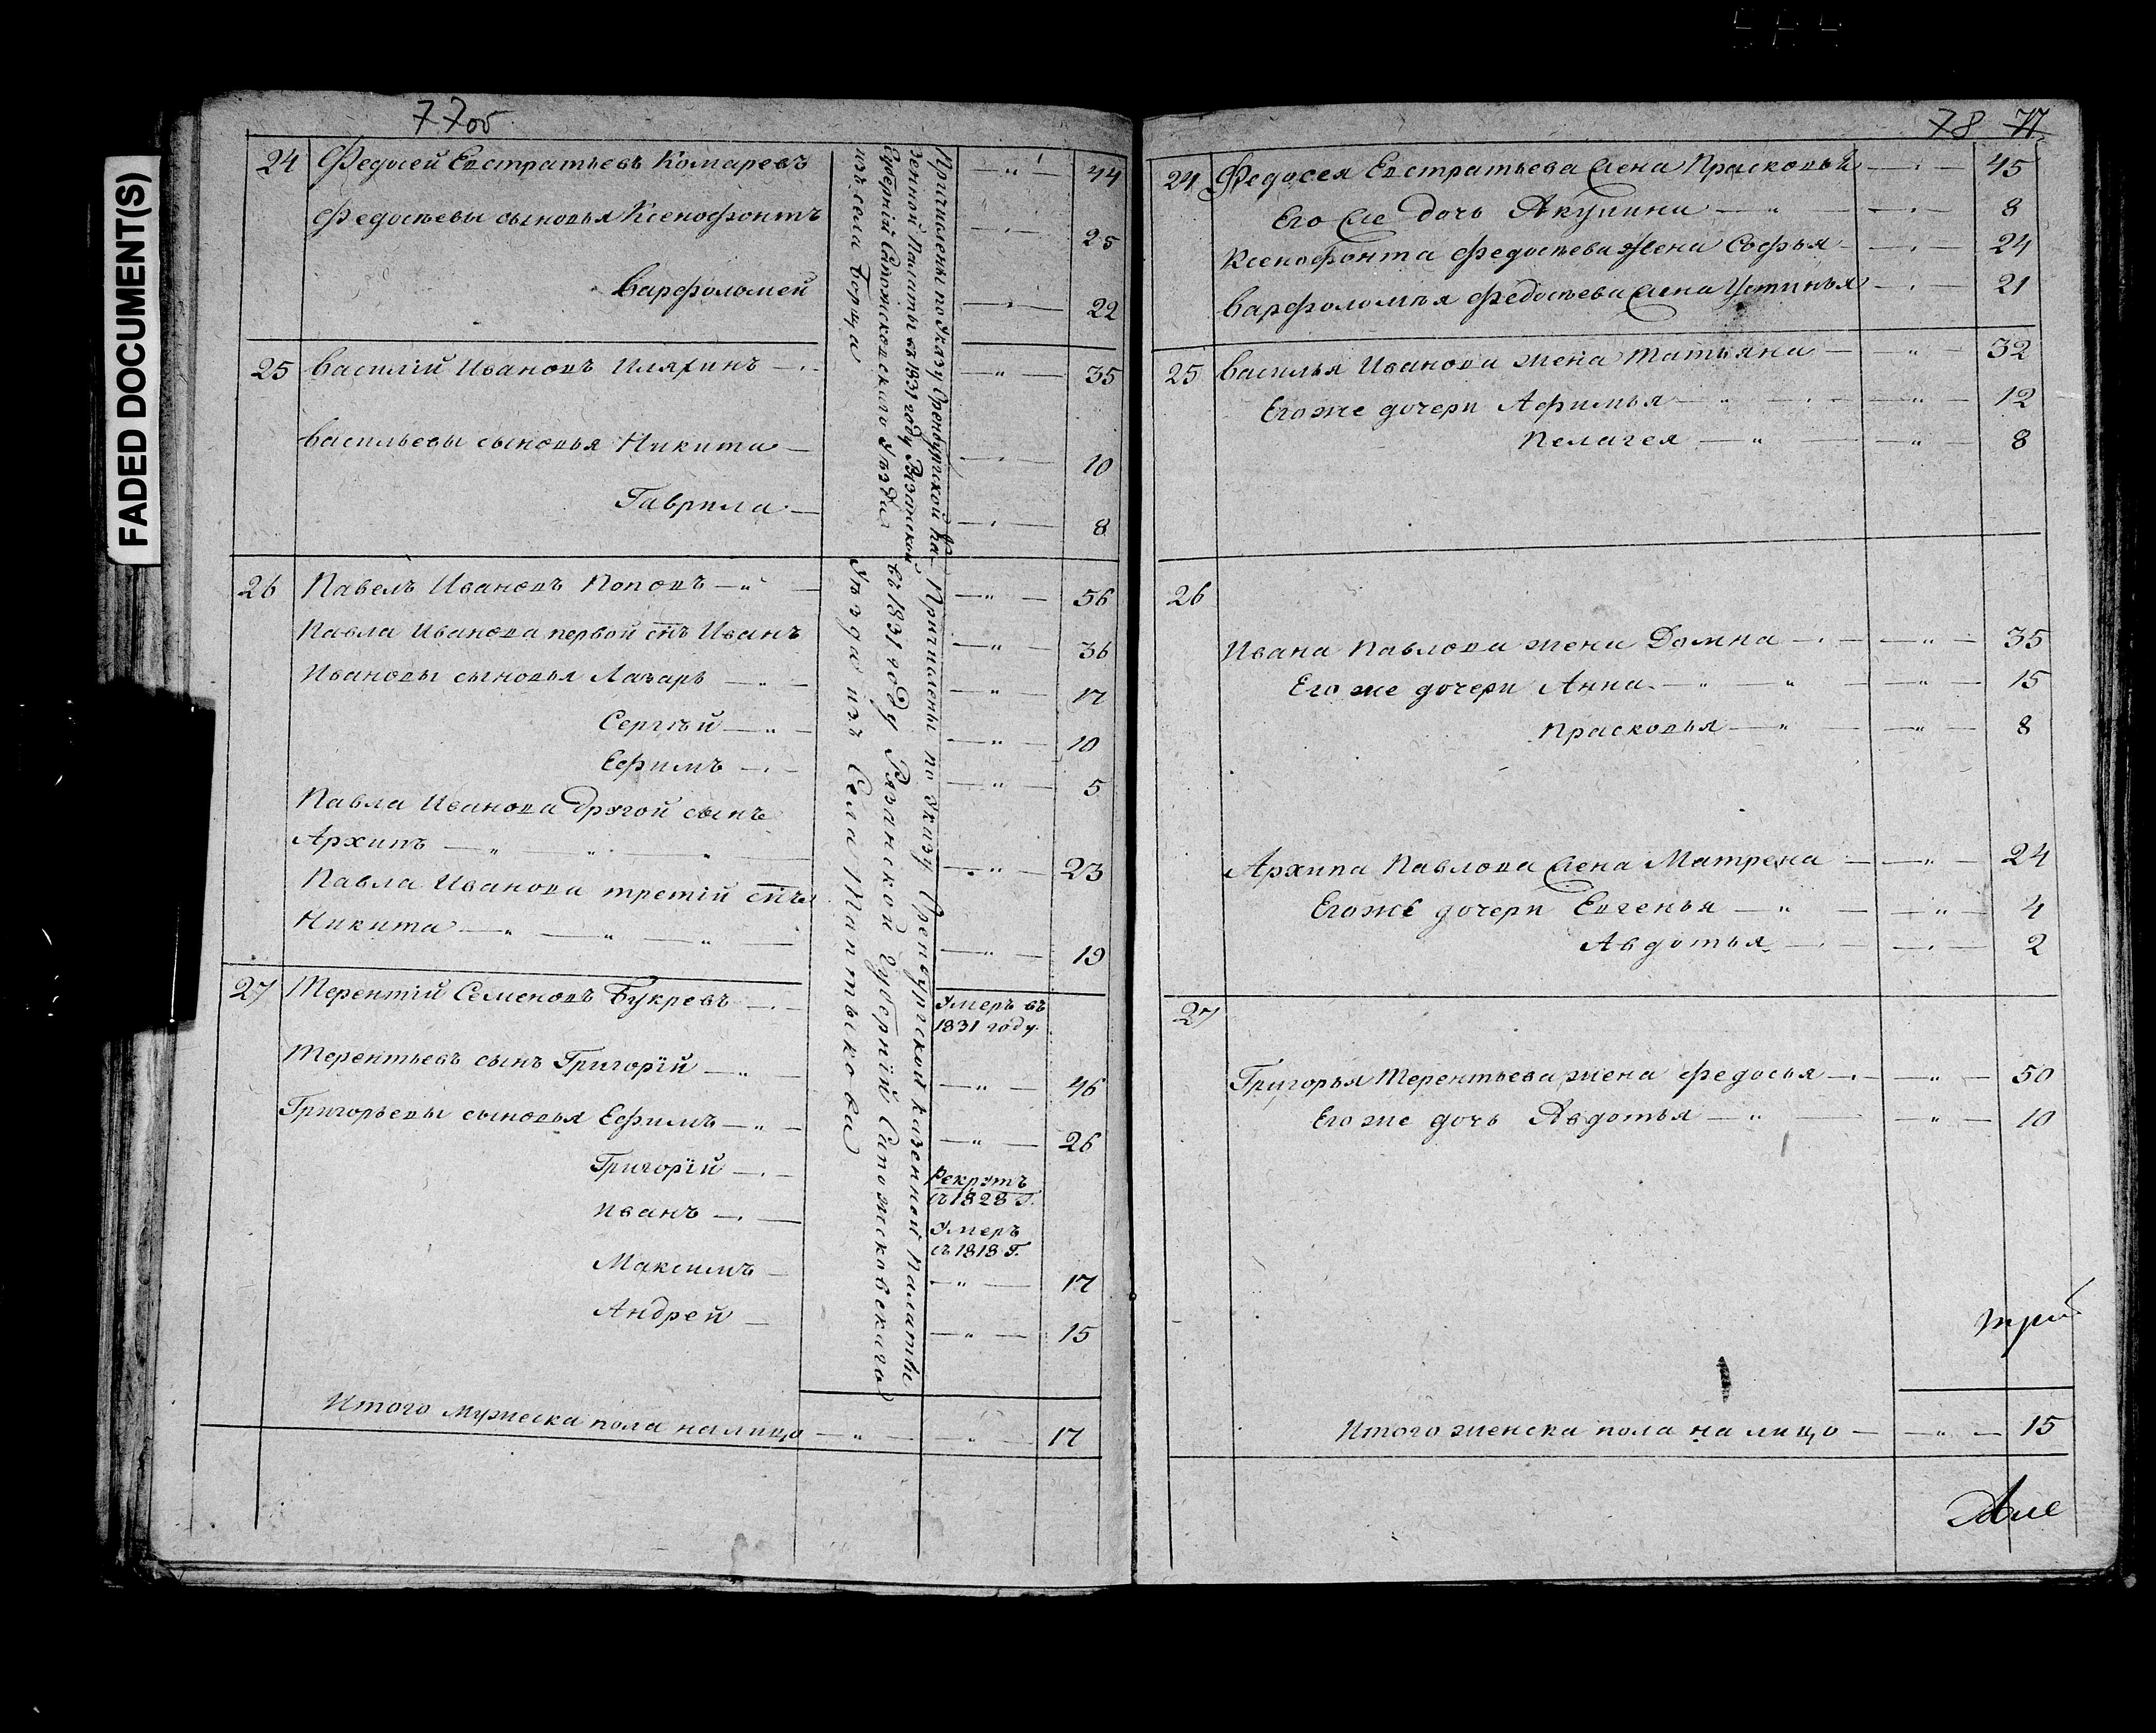 77об
24 Федосей Евстратьевъ Комаревъ —"— 44
Федосѣевы сыновья Ксенофонтъ —"— 25
Варфоломей —"— 22
25 Василий Ивановъ Иляхинъ —"— 35
Васильевы сыновья Никита —"— 10
Гаврила —"— 8
Причислены по Указу Оренбургской Ка-
зенной Палаты въ 1831 году Рязанской
Губернїй Сапожсковскаго Уѣзда
изъ села Борца
26 Павелъ Ивановъ Поповъ —"— 56
Павла Иванова первой снъ Иванъ —"— 36
Ивановы сыновья Лазарь —"— 17
Сергѣй —"— 10
Ефимъ —"— 5
Павла Иванова другой сынъ
Архипъ —"— 23
Павла Иванова третій снъ
Никита —"— 19
27 Терентій Семеновъ Букревъ —"— Умеръ въ
1831 году.
Терентьевъ сынъ Григорій —"— 46
Григорьевы сыновья Ефимъ —"— 26
Григорїй —"— Рекрутъ
съ 1828 г.
Иванъ —"— Умеръ
съ 1818 г.
Максимъ —"— 17
Андрей —"— 15
Причислены по Указу Оренбургской казенной Палаты
въ 1831 году Рязанской Губернїй Сапожсковскаго
Уѣзда изъ Села Таптыкова
Итого мужеска пола налицо —"— 17
78 77
24 Федосея Евстратьева жена Прасковья —"— 45
Его же дочь Акулина —"— 8
Ксенофонта Федосѣева жена Софья —"— 24
Варфоломѣя Федосѣева жена Устинья —"— 21
25 Василья Иванова жена Татьяна —"— 32
Егоже дочери Афимья —"— 12
Пелагея —"— 8
26
Ивана Павлова жена Домна —"— 35
Его же дочери Анна —"— 15
Прасковья —"— 8
Архипа Павлова жена Матрена —"— 24
Егоже дочери Евгенья —"— 4
Авдотья —"— 2
27
Григорья Терентьева жена Федосья —"— 50
Его же дочь Авдотья —"— 10
Итого женска пола на лицо —"— 15
FADED DOCUMENT(S)